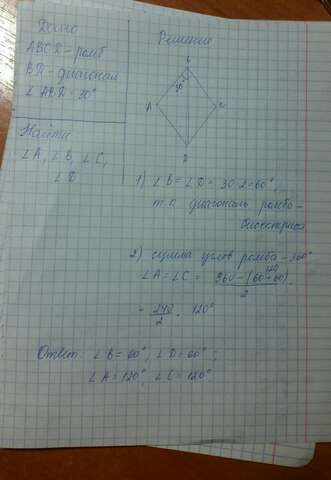 Дано
ABCD - ромб
BD - диагонал
∠ ABD = 30°
Найти
∠A, ∠B, ∠C,
∠D
Решение
B
30°
A
C
D
1) ∠B = ∠D = 30·2=60°,
т.к. диагональ ромба -
биссектриса
2) сумма углов ромба - 360°
120
∠A = ∠C = 360-(60+60)
2
= 240 = 120°
2
Ответ: ∠B = 60°, ∠D = 60°,
∠A = 120°, ∠C = 120°